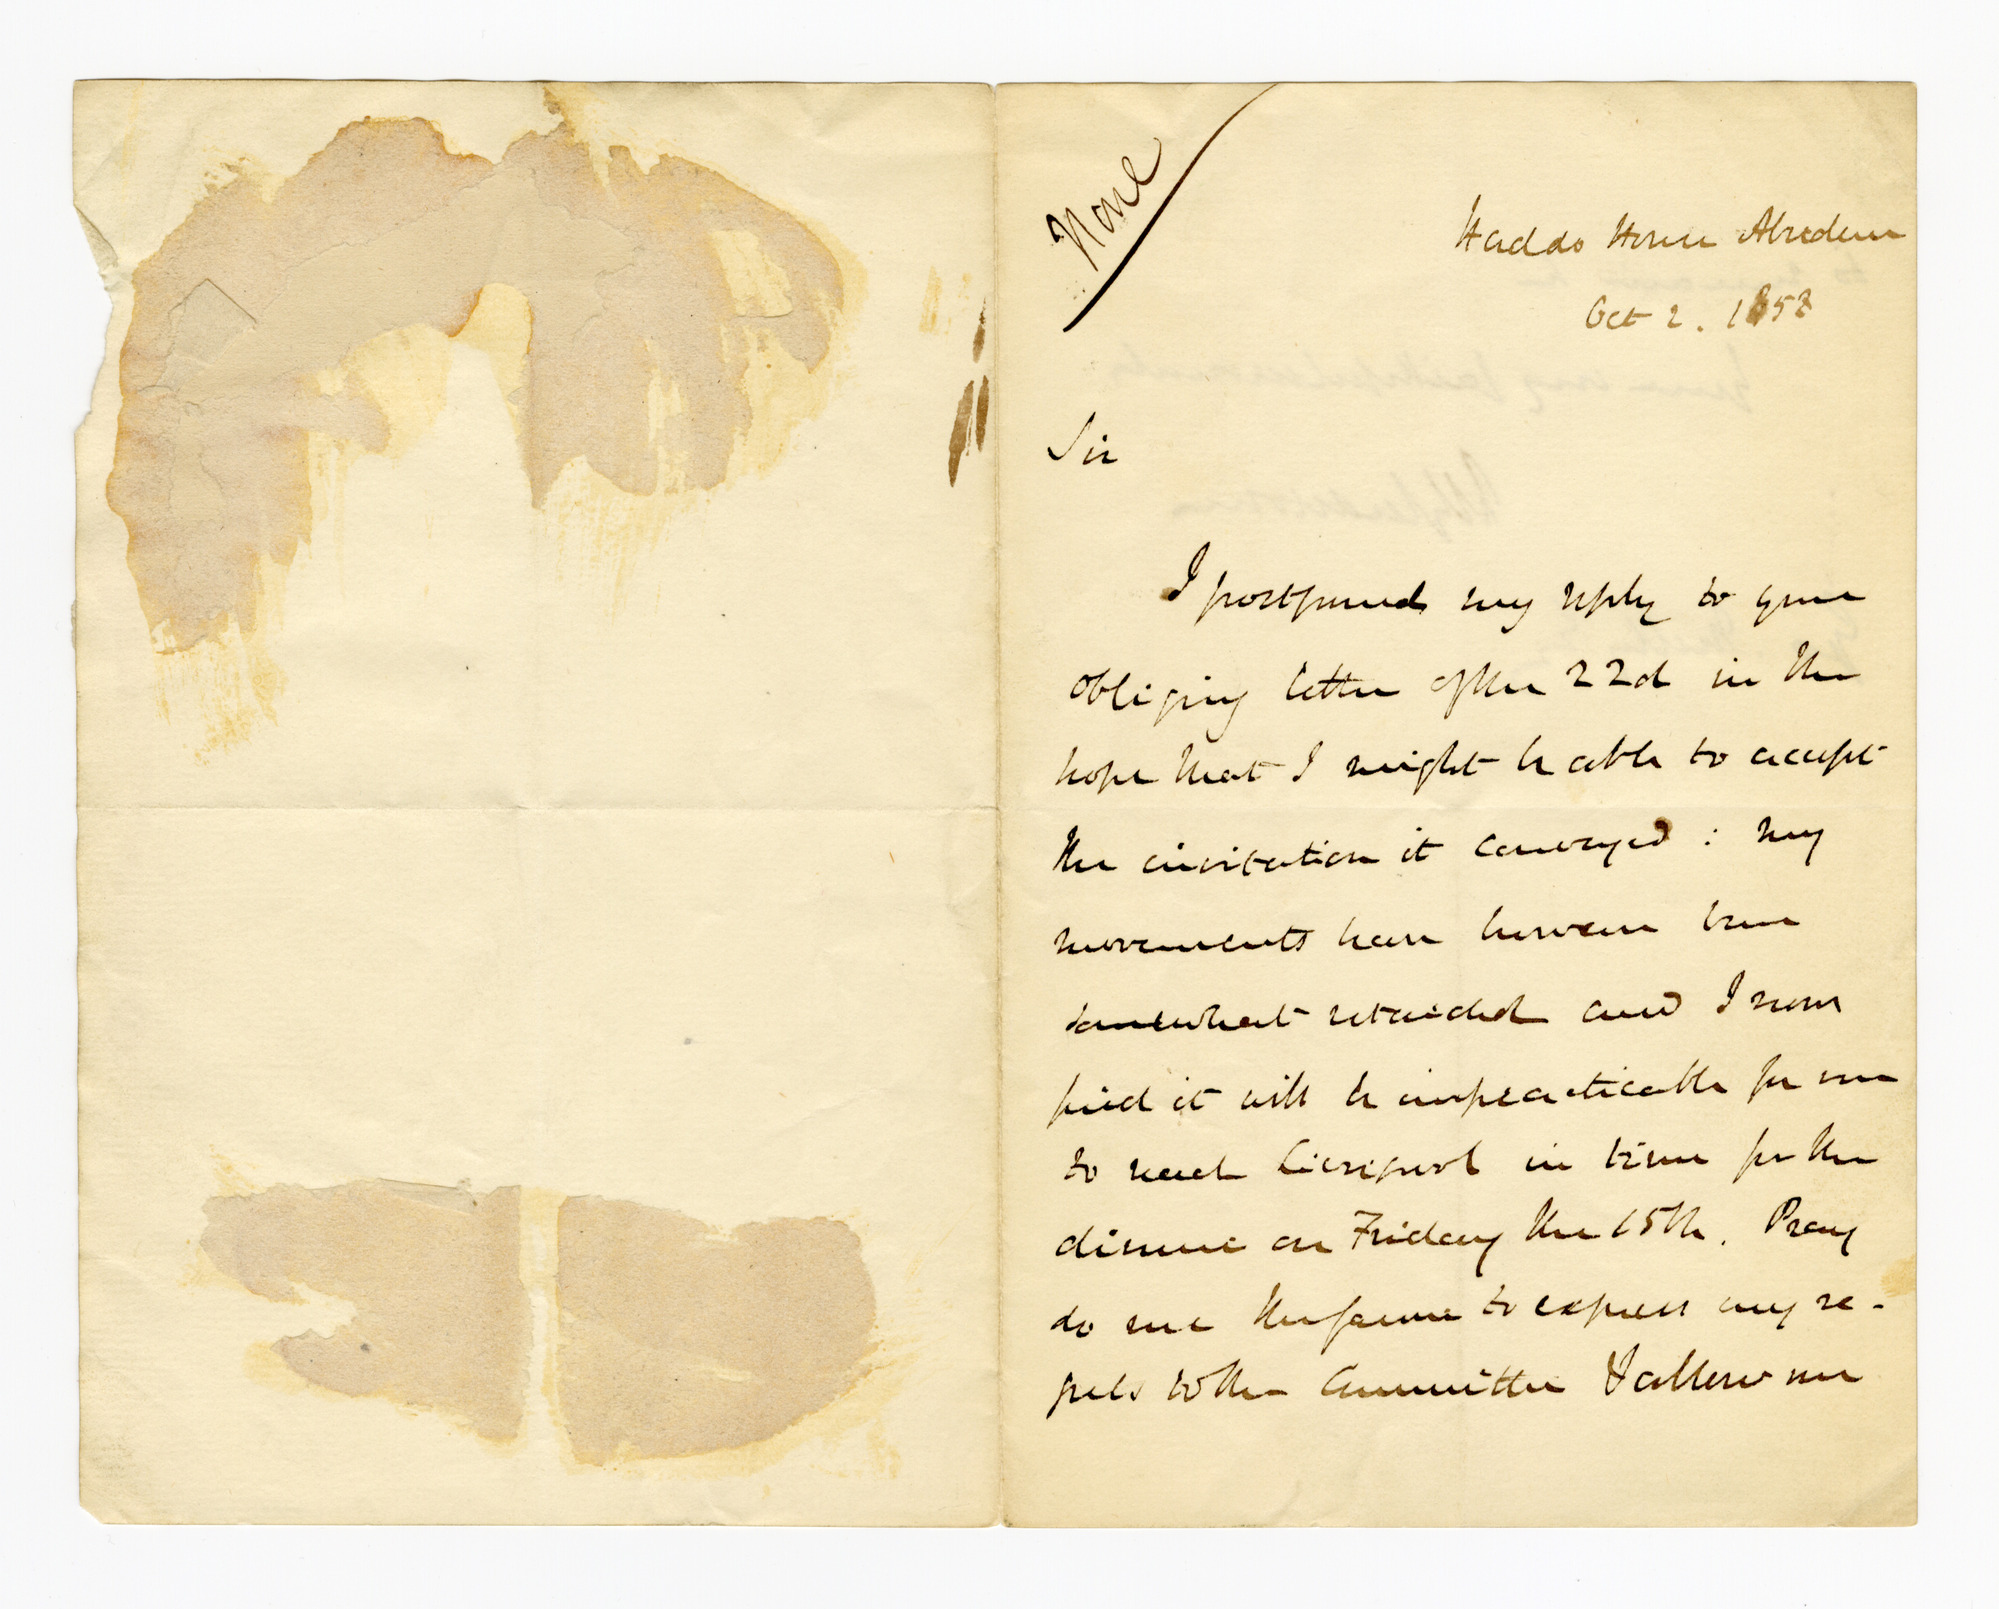 None
Haddo House Aberdeen
Oct 2. 1858
Sir
I postponed my reply to your
obliging letter of the 22d in the
hope that I might be able to accept
the invitation it conveyed : my
movements have however been
somewhat retarded and I now
find it will be impracticable for me
to reach Liverpool in time for the
dinner on Friday the 15th. Pray
do me the favour to express my re-
grets to the Committee & allow me